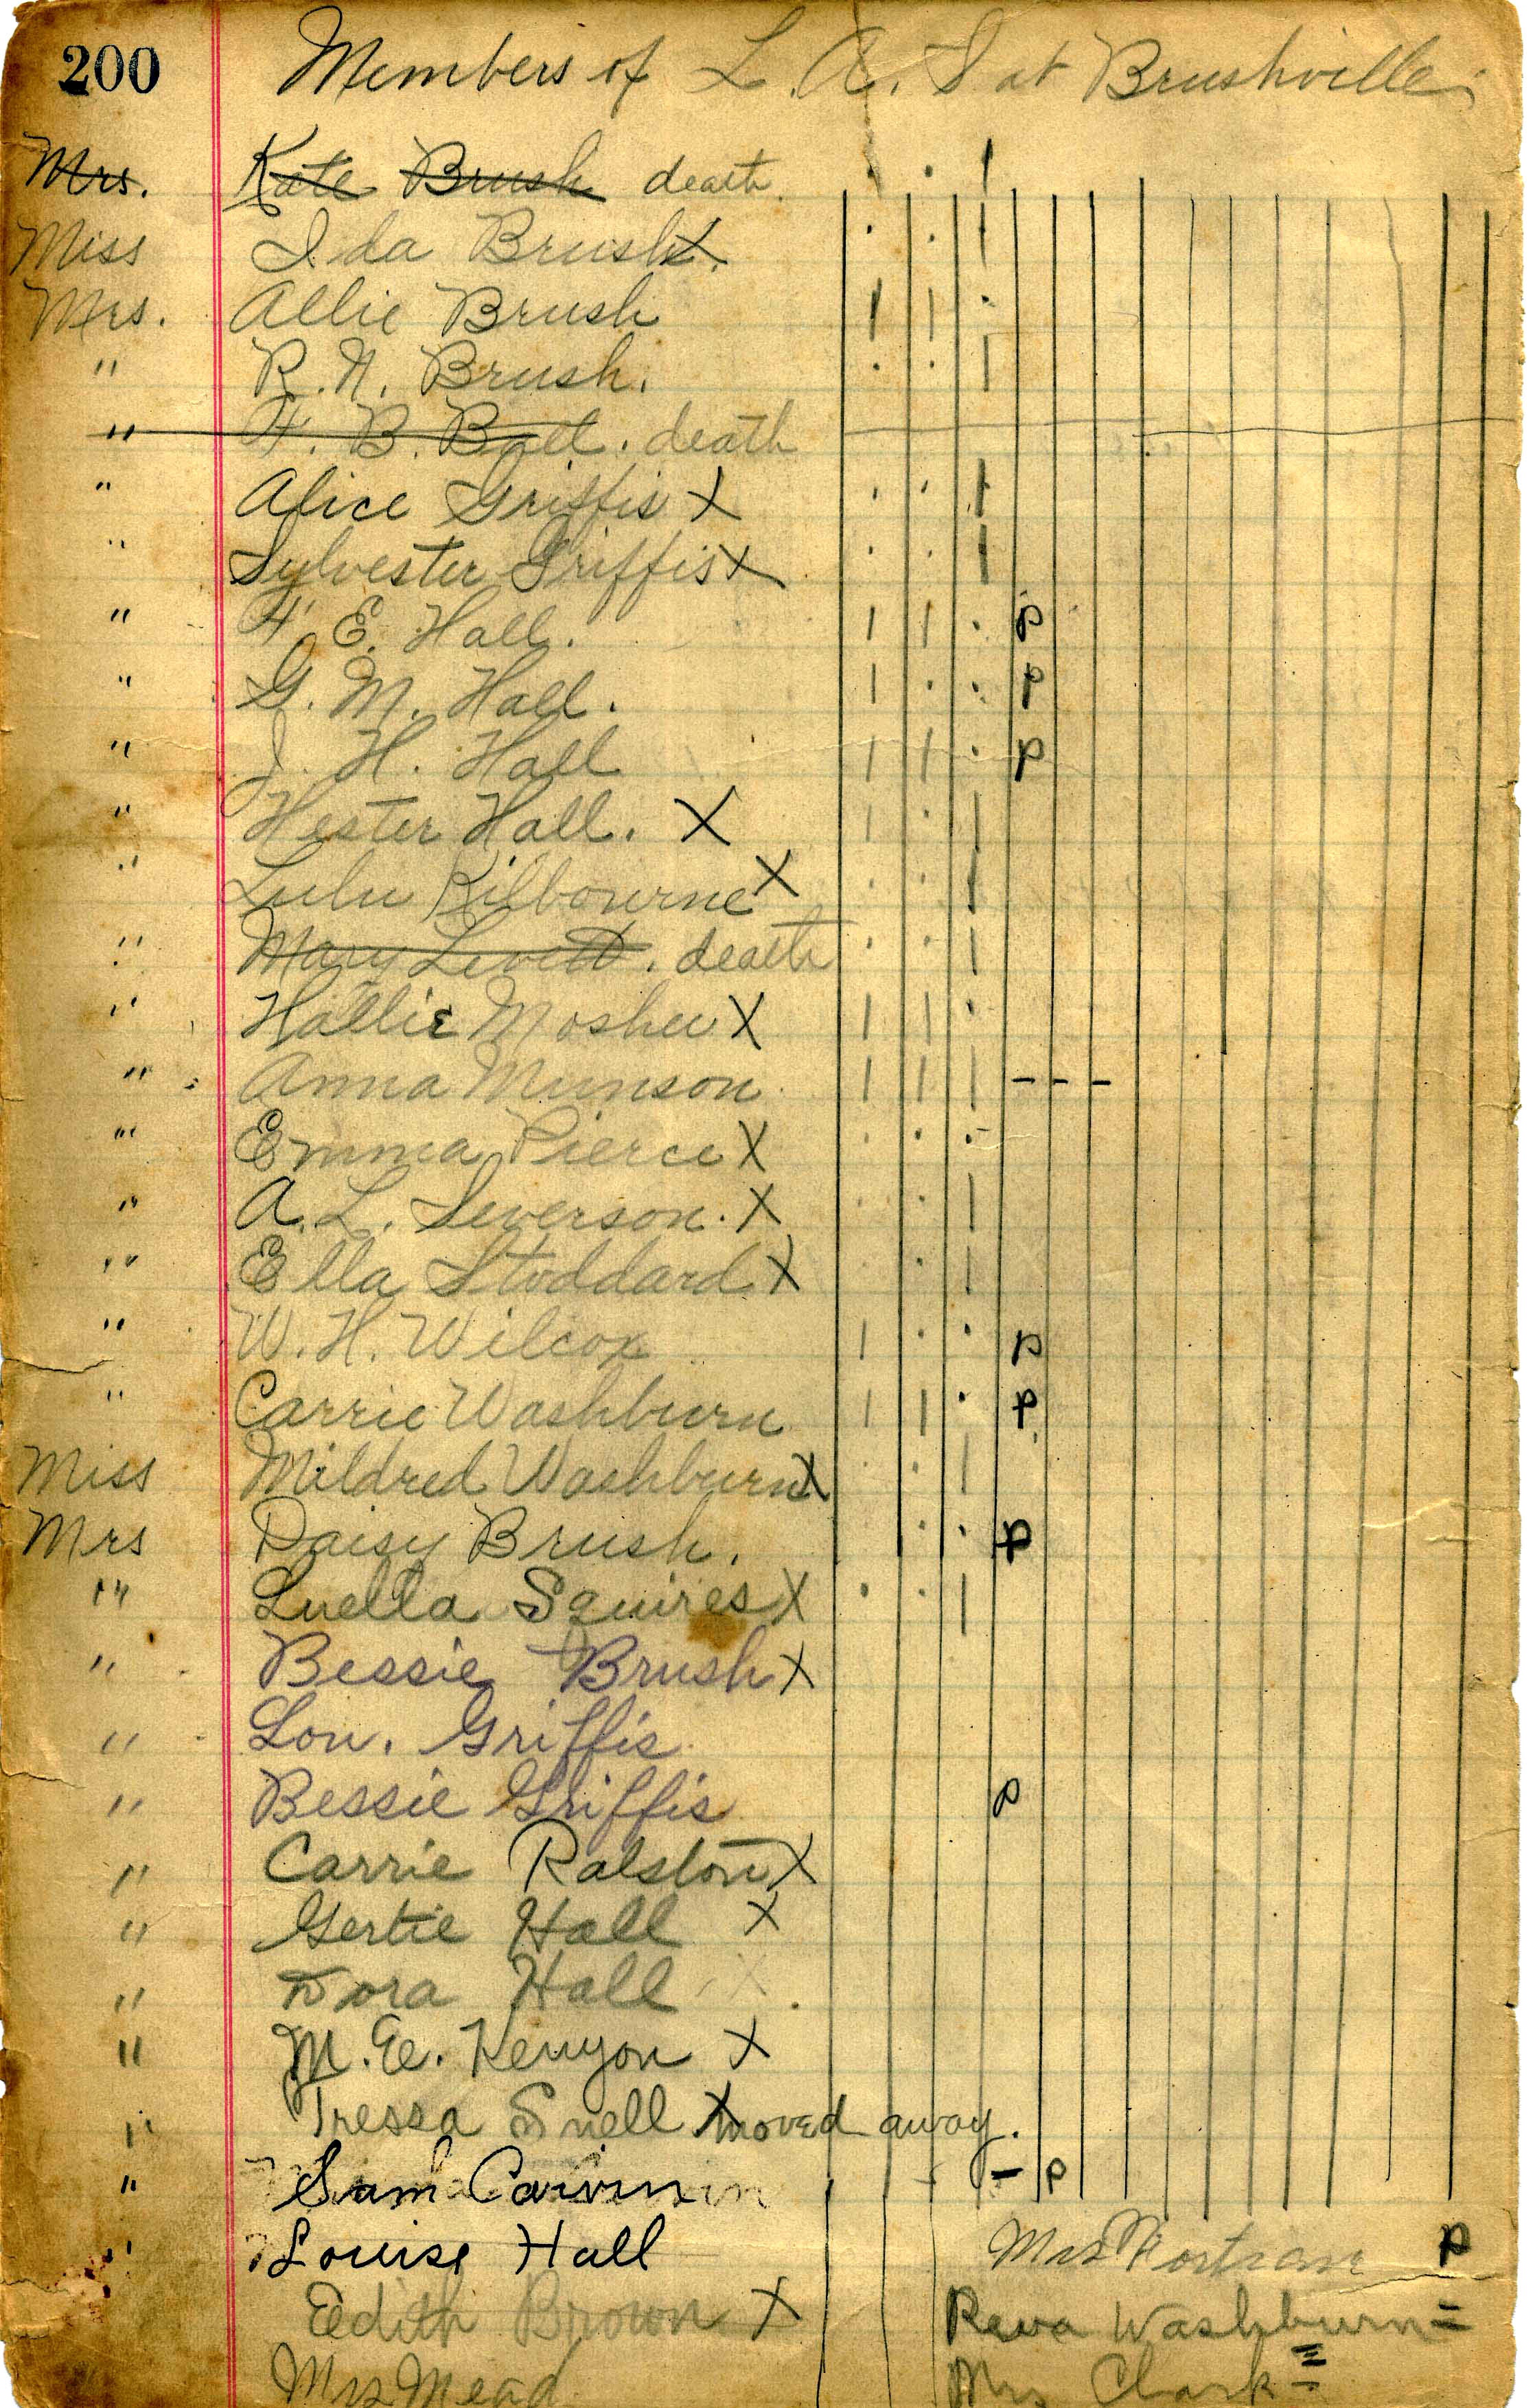 200 Members of L. A. S at Brushville.
Mrs. Kate Brush death.
Miss Ida Brush X
Mrs. Allie Brush
" R. N. Brush.
" F. B. death
" Alice Griffis X
" Sylvester Griffis X
" F. E. Hall. p
" G. M. Hall. p
" J. H. Hall p
" Hester Hall. X
" Lulu Kilbourne X
" Mary Levett. death
" Hallie Mosher X
" Anna Munson - - -
" Emma Pierce X
" A. L. Severson. X
" Ella Stoddard X
" W. H. Wilcox p
" Carrie Washburn p
Miss Mildred Washburn X
Mrs Daisy Brush. p
" Luella Squires X
" Bessie Brush X
" Lou. Griffis
" Bessie Griffis p
" Carrie Ralston X
" Gertie Hall X
" Dora Hall X
" M. E. Kenyon X
" Tressa Snell X moved away.
" Sam Carvin - p
" Louise Hall Mrs p
Edith Brown X Reva Washburn =
Mrs Mead Mrs Clark =